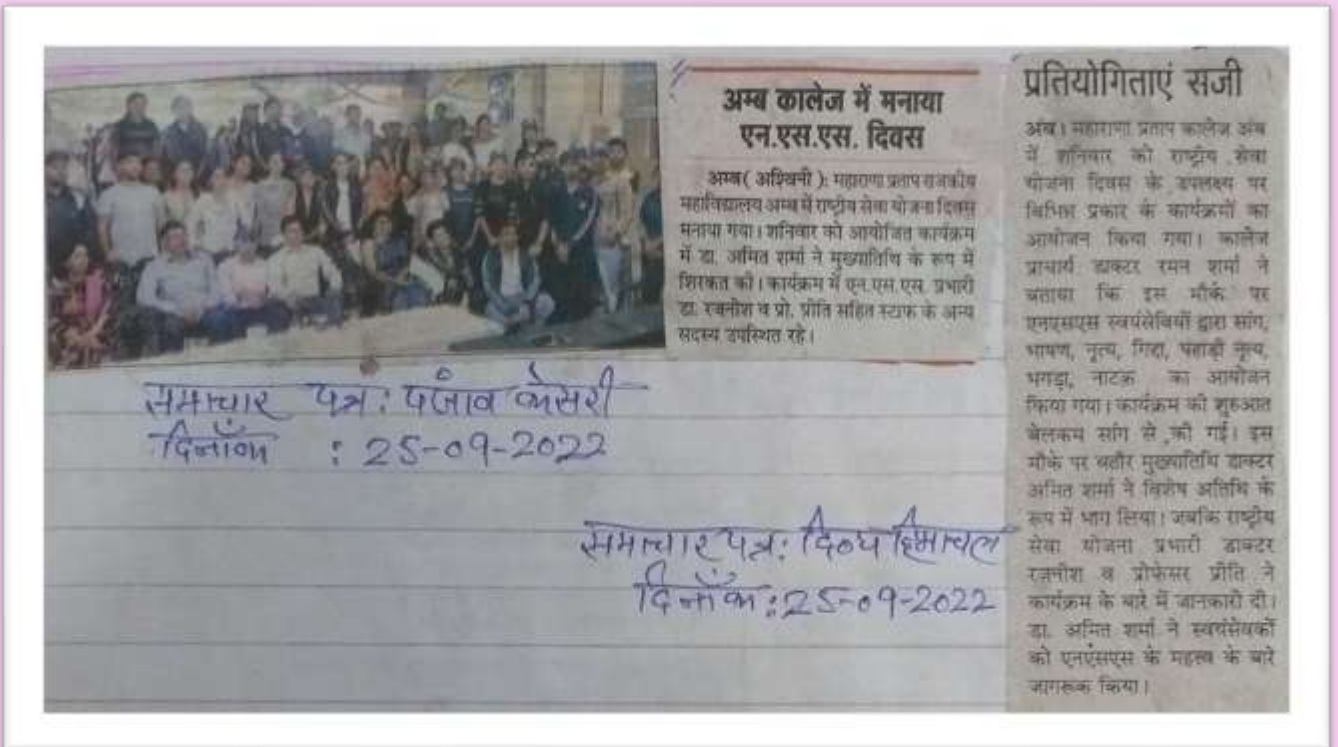 अम्ब कालेज में मनाया
एन.एस.एस. दिवस
अम्ब( अश्विनी ): महाराणा प्रताप राजकीय
महाविद्यालय अम्ब में राष्ट्रीय सेवा योजना दिवस
मनाया गया। शनिवार को आयोजित कार्यक्रम
में डा. अमित शर्मा ने मुख्यातिथि के रूप में
शिरकत की। कार्यक्रम में एन.एस.एस. प्रभारी
डा. रजनीश व प्रो. प्रीति सहित स्टाफ के अन्य
सदस्य उपस्थित रहे।
समाचार पत्र : पंजाब केसरी
दिनाँक : 25-09-2022
समाचार पत्र : दिव्य हिमाचल
दिनाँक : 25-09-2022
प्रतियोगिताएं सजी
अंब। महाराणा प्रताप कालेज अंब
में शनिवार को राष्ट्रीय सेवा
योजना दिवस के उपलक्ष्य पर
विभिन्न प्रकार के कार्यक्रमों का
आयोजन किया गया। कालेज
प्राचार्य डाक्टर रमन शर्मा ने
बताया कि इस मौके पर
एनएसएस स्वयंसेवियों द्वारा सांग,
भाषण, नृत्य, गिद्दा, पहाड़ी नृत्य,
भंगड़ा, नाटक का आयोजन
किया गया। कार्यक्रम की शुरुआत
वेलकम सांग से की गई। इस
मौके पर बतौर मुख्यातिथि डाक्टर
अमित शर्मा ने विशेष अतिथि के
रूप में भाग लिया। जबकि राष्ट्रीय
सेवा योजना प्रभारी डाक्टर
रजनीश व प्रोफेसर प्रीति ने
कार्यक्रम के बारे में जानकारी दी।
डा. अमित शर्मा ने स्वयंसेवकों
को एनएसएस के महत्त्व के बारे
जागरूक किया।